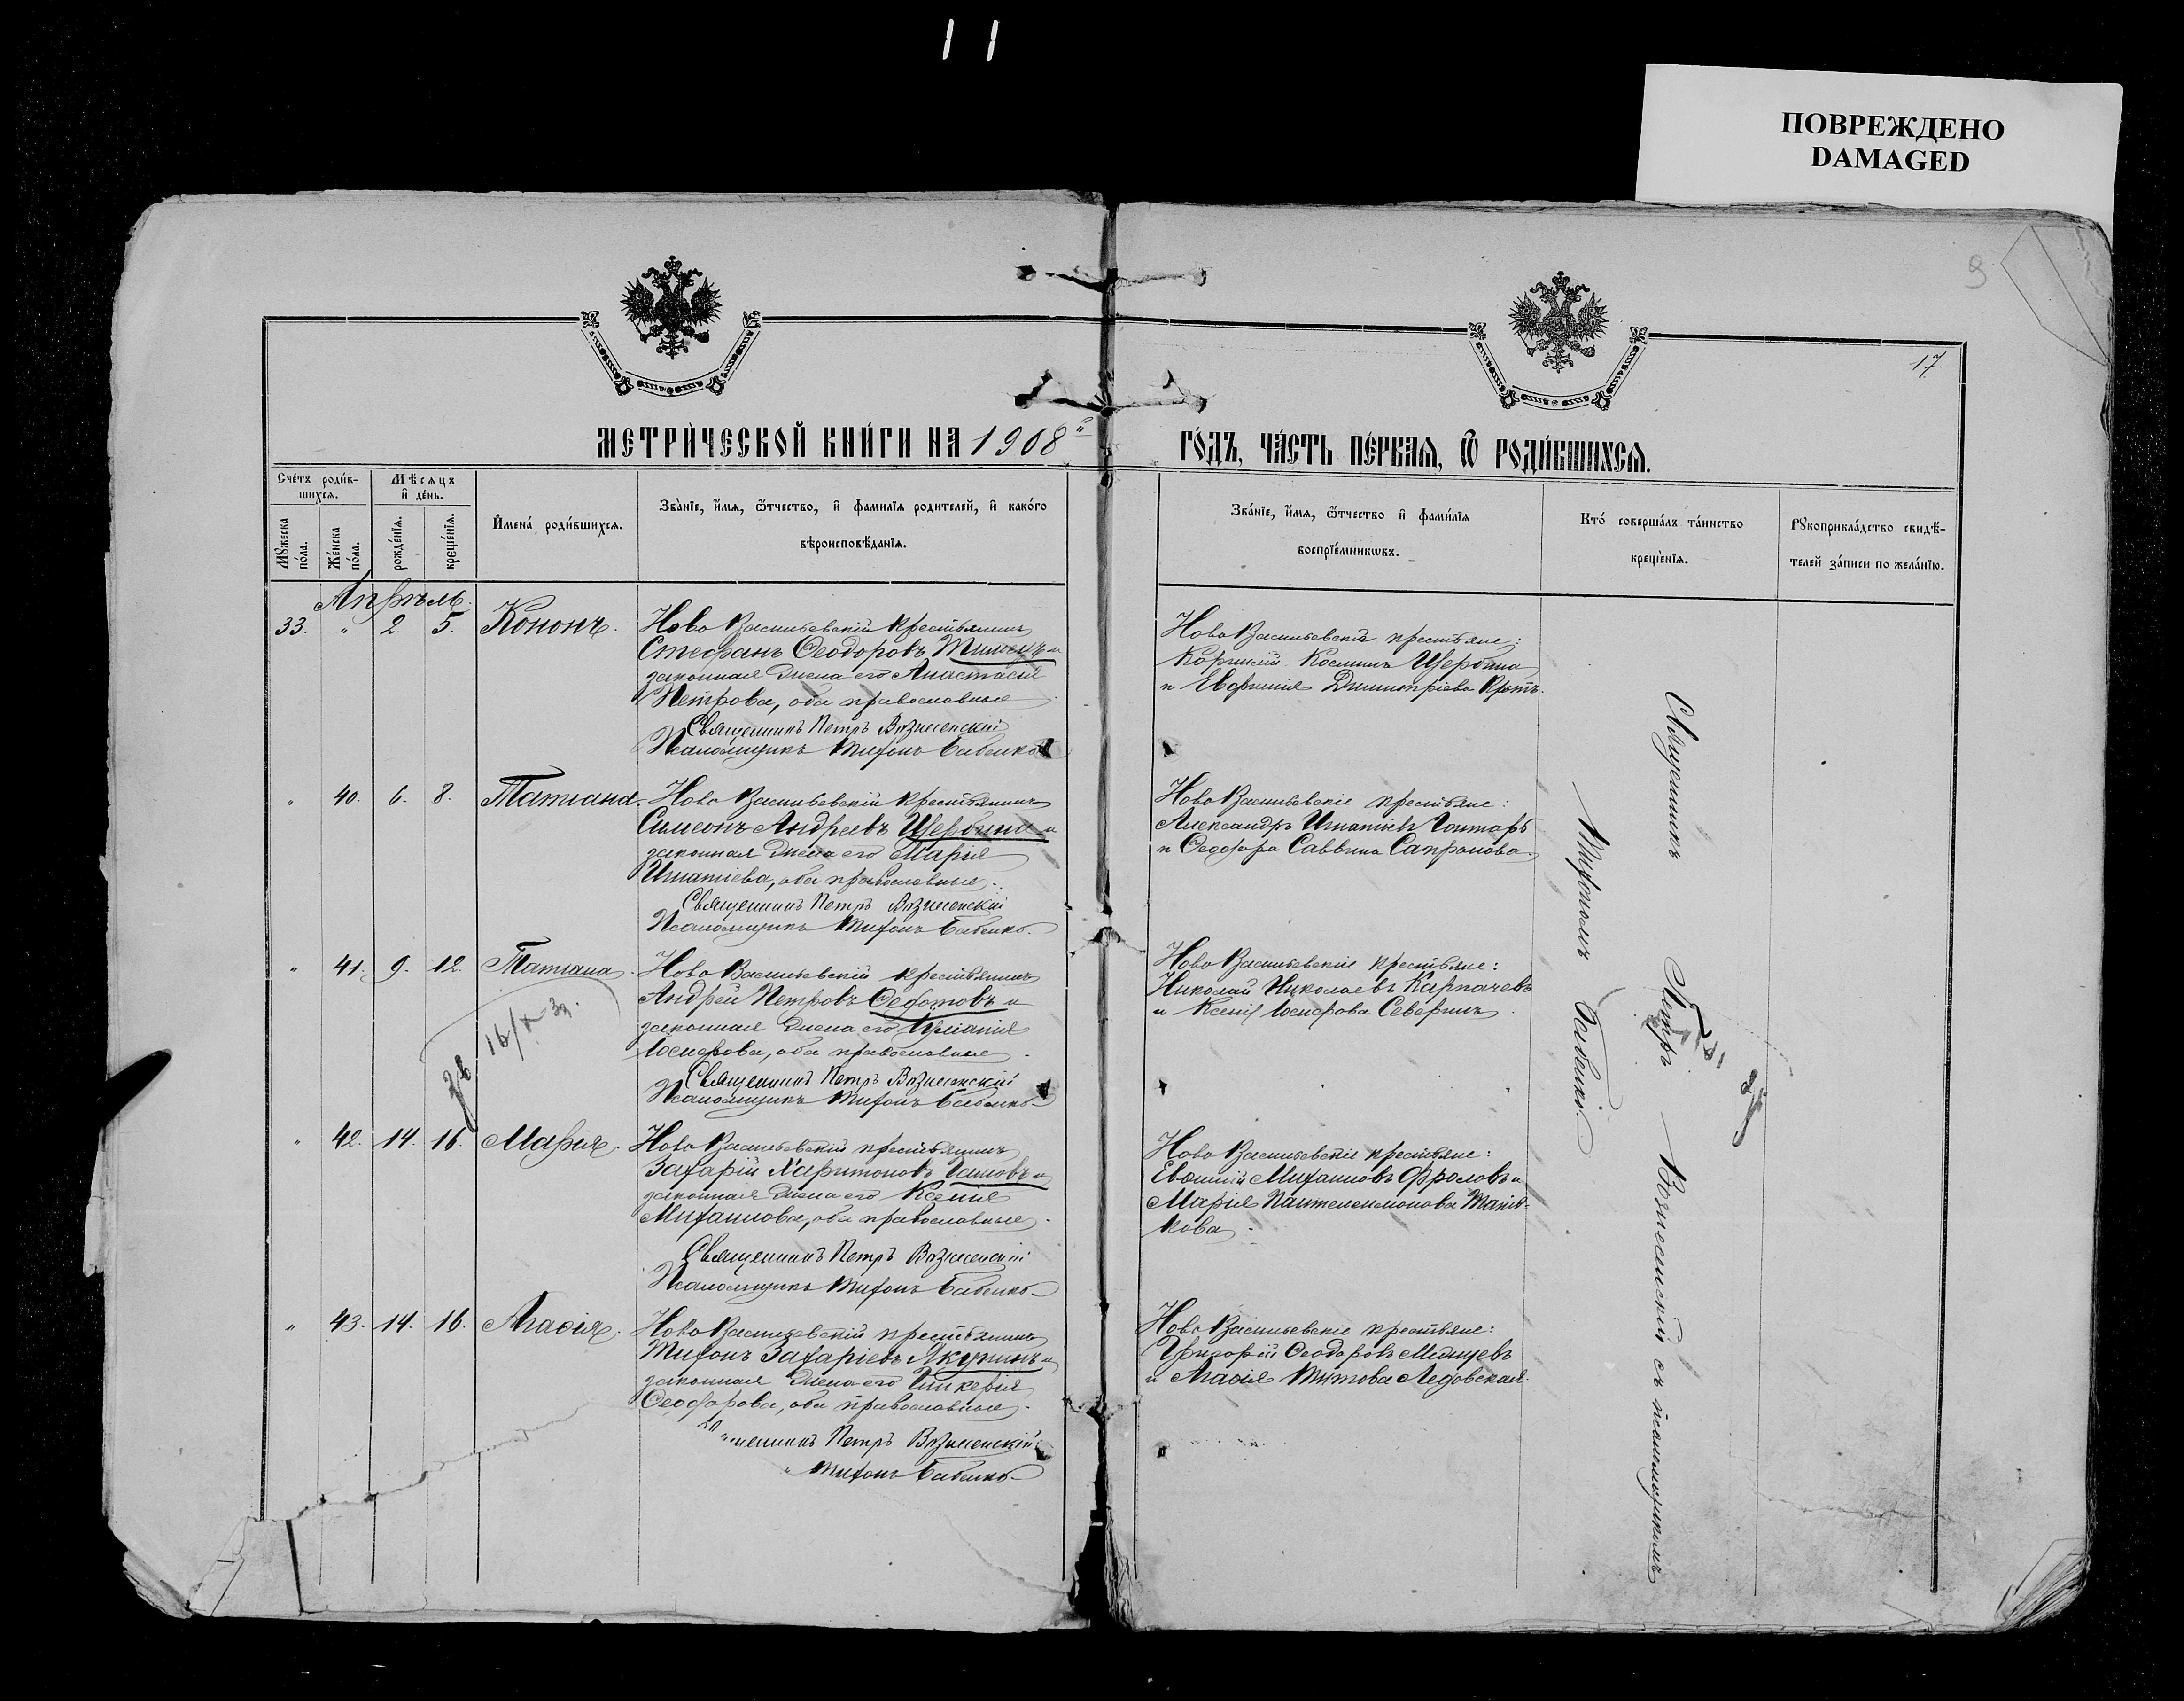 11
ПОВРЕЖДЕНО
DAMAGED
9
17.
МЕТРИЧЕСКОЙ КНИГИ НА 1908й
ГОДЪ, ЧАСТЬ ПЕРВАЯ, Ѿ РОДИВШИХСЯ.
Счетъ родив-
шихся.
Мѣсяцъ
и день.
Мужеска
пола.
Женска
пола.
рожденія.
крещенія.
Имена родившихся.
Званіе, имя, ѿтчество, и фамилія родителей, и какого
вѣроисповѣданія.
Званіе, имя, ѿтчество и фамилія
воспріемниковъ.
Кто совершалъ таинство
крещенія.
Рукоприкладство свидѣ-
телей записи по желанію.
Апрѣль.
33. " 2. 5. Кононъ.
Ново Васильевскій крестьянинъ
Стефанъ Ѳеодоровъ и
законная жена его Анастасія
Петрова, оба православные
Священникъ Петръ Вознесенскій
Псаломщикъ Тихонъ Бабенко
Ново Васильевскіе крестьяне:
Корнилій Косминъ Щербина
и Евфимія Димитріева Кротъ.
" 40. 6. 8. Татіана.
Ново Васильевскій крестьянинъ
Симеонъ Андреевъ Щербина и
законная жена его Марія
Игнатіева, оба православные.
Священникъ Петръ Вознесенскій
Псаломщикъ Тихонъ Бабенко.
Ново Васильевскіе крестьяне:
Александръ Игнатіевъ Гонтарь
и Ѳеодора Саввина Сапронова.
" 41. 9. 12. Татіана.
Ново Васильевскій крестьянинъ
Андрей Петровъ Ѳедотовъ и
законная жена его Іуліанія
Іосифова, оба православные.
Священникъ Петръ Вознесенскій
Псаломщикъ Тихонъ Бабенко
Ново Васильевскіе крестьяне:
Николай Николаевъ Карпачевъ
и Ксенія Іосифова Севергинъ.
" 42. 14. 16. Марія.
Ново Васильевскій крестьянинъ
Захарій Харитоновъ и
законная жена его Ксенія
Михаилова, оба православные.
Священникъ Петръ Вознесенскій
Псаломщикъ Тихонъ Бабенко
Ново Васильевскіе крестьяне:
Евѳимій Михаиловъ Фроловъ и
Марія Пантелеимонова
кова.
" 43. 14. 16. Агаѳія.
Ново Васильевскій крестьянинъ
Тихонъ Захаріевъ Якунинъ и
законная жена его Гликерія
Ѳеодорова, оба православные.
Петръ Вознесенскій
Тихонъ Бабенко
Ново Васильевскіе крестьяне:
Григорій Ѳеодоровъ
и Агаѳія Титова Ледовская.
Священникъ Петръ Вознесенскій съ псаломщикомъ
Тихономъ Бабенко.